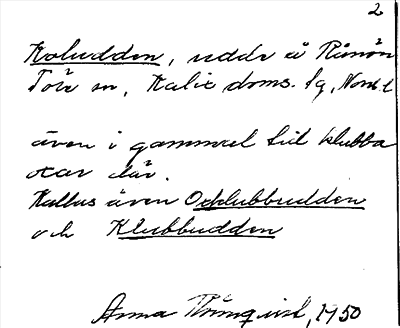 2
Koludden, udde å Rånön
Töre sn, Kalix doms. sg, Nordl
även i gammal tid klubba
där.
Kallas även Oxklubbudden
och Klubbudden
Anna Thünquist, 1950